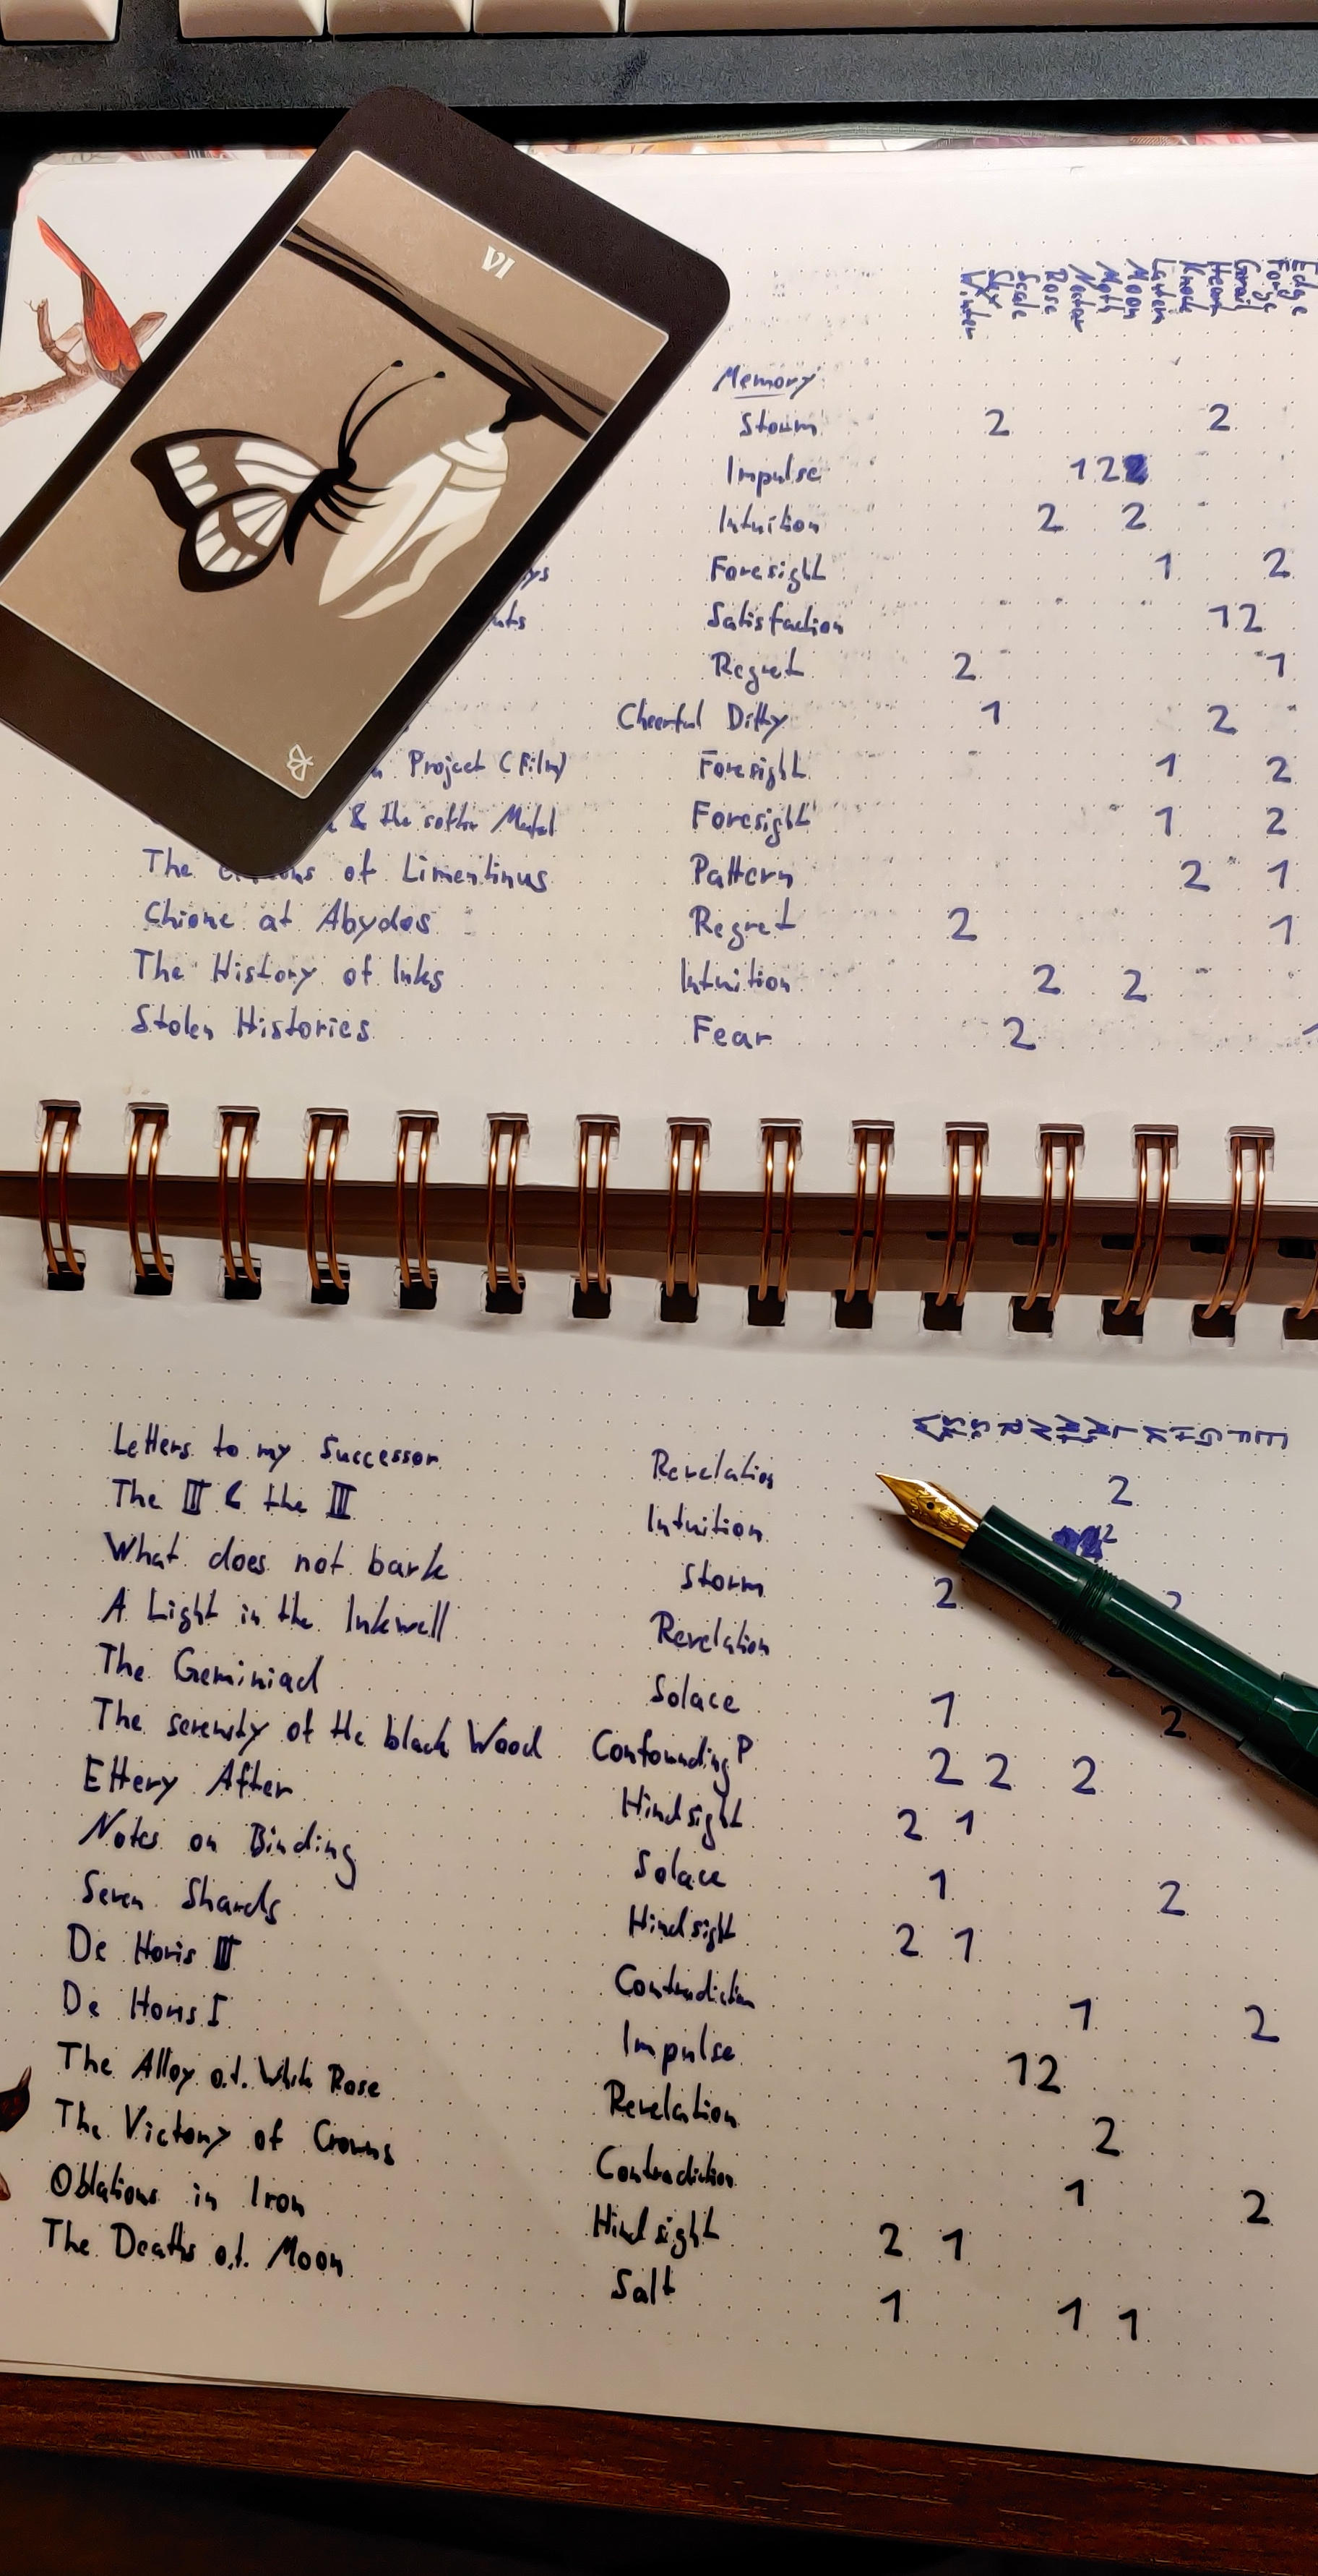 VI
Edge
Forge
Grail
Heart
Knock
Lantern
Moon
Moth
Nectar
Rose
Scale
Sky
Winter
Memory
Storm 2 2
Impulse 1 2
Intuition 2 2
Foresight 1 2
Satisfaction 1 2
Regret 2 1
Cheerful Ditty 1 2
Project (Film) Foresight 1 2
& the Metal Foresight 1 2
The of Limentinus Pattern 2 1
Chione at Abydos Regret 2 1
The History of Inks Intuition 2 2
Stolen Histories Fear 2 1
W S S R N M M L K H G F E
Letters to my Successor Revelation 2
The III & the III Intuition 2
What does not bark Storm 2 2
A Light in the Inkwell Revelation 2
The Geminiad Solace 1 2
The serenity of the black Wood Confounding P 2 2 2
Ettery After Hindsight 2 1
Notes on Binding Solace 1 2
Seven Shards Hindsight 2 1
De Horis III Contradiction 1 2
De Horis I Impulse 1 2
The Alloy o.t. White Rose Revelation 2
The Victory of Crowns Contradiction 1 2
Oblations in Iron Hindsight 2 1
The Deaths o.t. Moon Salt 1 1 1